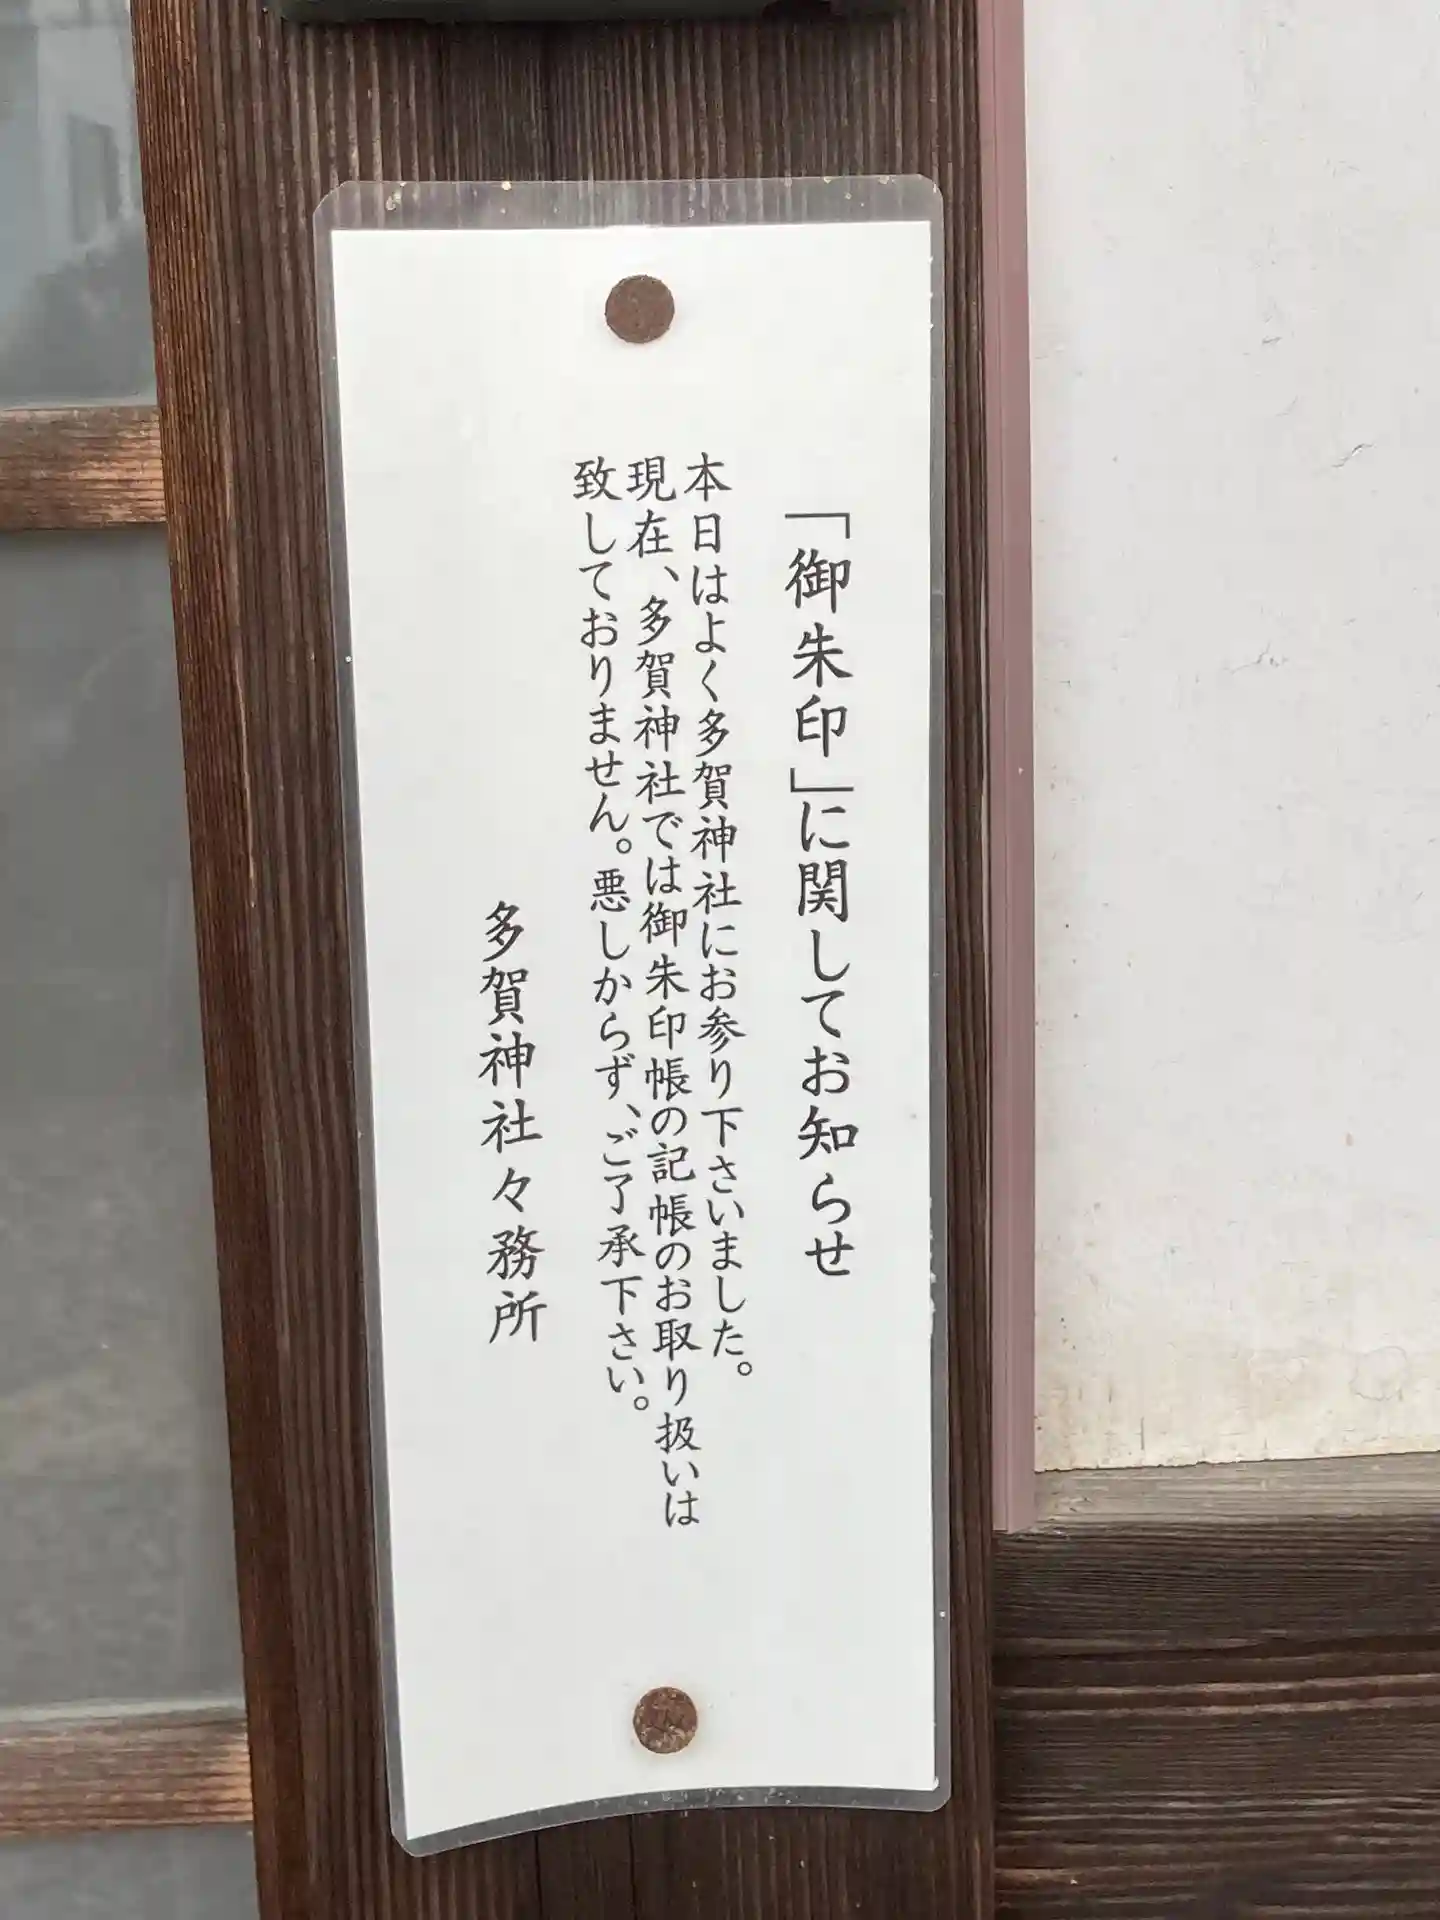 「御朱印」に関してお知らせ
本日はよく多賀神社にお参り下さいました。
現在、多賀神社では御朱印帳の記帳のお取り扱いは
致しておりません。悪しからず、ご了承下さい。
多賀神社々務所